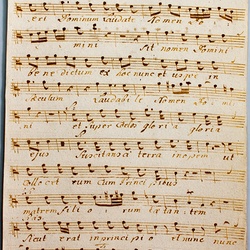 eri Dominum Laudate Nomen
mini Sit nomen Domini
be ne dictum ex hoc nunc et usque in
Saeculum Laudabile Nomen Domi
ni et super Celos gloria gloria
ejus Suscitans a terra inopem ut
Collo cet eum Cum principibus
matrem fili o rum laetantem
Sicut erat in principio et nunc nunc